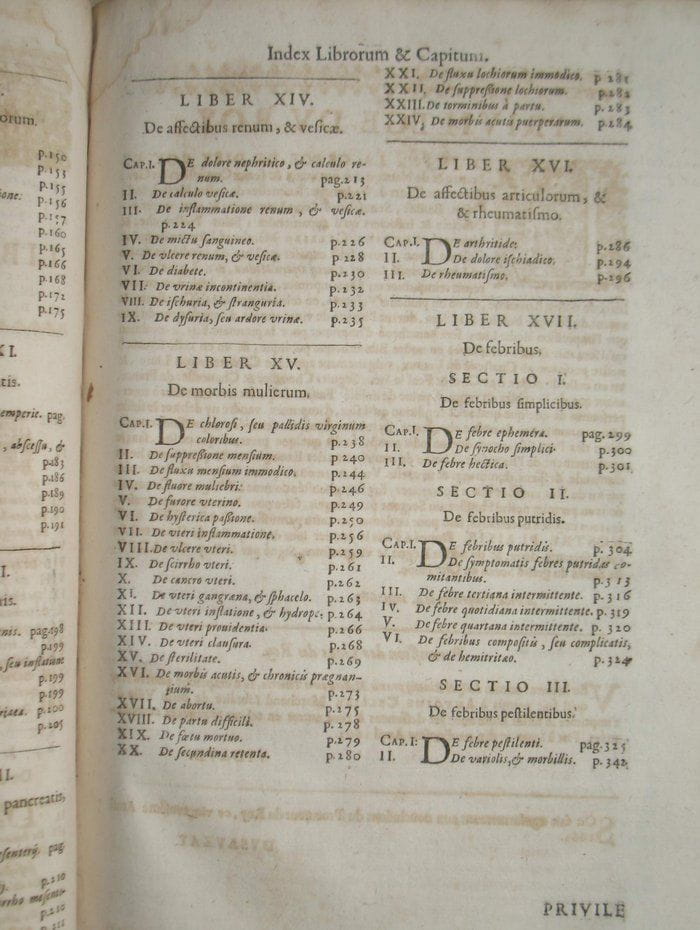 orum.
p.150
p.153
p.155
ione: p.156
p.157
p.160
p.165
p.166
p.168
p.172
p.175
XI.
tis.
emperie. pag.
, abscessu, &
p.183
p.186
p.189
p.190
p.191
I.
ris.
nis. pag.198
p.199
, seu inflatione
p.199
p.199
p.200
p.205
II.
pancreatis,
pag.
p.210
p.210
p.211
Index Librorum & Capitum.
LIBER XIV.
De affectibus renum, & vesicæ.
CAP.I. DE dolore nephritico, & calculo re-
num. pag.213
II. De calculo vesicæ. p.221
III. De inflammatione renum, & vesicæ.
p.224
IV. De mictu sanguineo. p.226
V. De vlcere renum, & vesicæ. p 228
VI. De diabete. p.230
VII. De vrinæ incontinentia. p.232
VIII. De ischuria, & stranguria. p.233
IX. De dysuria, seu ardore vrinæ. p.235
LIBER XV.
De morbis mulierum.
CAP.I. DE chlorosi, seu pallidis virginum
coloribus. p.238
II. De suppressione mensium. p 240
III. De fluxu mensium immodico. p.244
IV. De fluore muliebri. p.246
V. De furore vterino. p.249
VI. De hysterica passione. p.250
VII. De vteri inflammatione. p.256
VIII.De vlcere vteri. p.259
IX. De scirrho vteri. p.261
X. De cancro vteri. p.262
XI. De vteri gangræna, & sphacelo. p.263
XII. De vteri inflatione, & hydrope: p.264
XIII. De vteri procidentia. p.266
XIV. De vteri clausura. p.268
XV. De sterilitate. p.269
XVI. De morbis acutis, & chronicis prægnan-
tium. p.273
XVII. De abortu. p.275
XVIII. De partu difficili. p.278
XIX. De fœtu mortuo. p.279
XX. De secundina retenta. p.280
XXI. De fluxu lochiorum immodico. p.281
XXII. De suppressione lochiorum. p.282
XXIII.De torminibus à partu. p.283
XXIV. De morbis acutis puerperarum. p.284
LIBER XVI.
De affectibus articulorum, &
& rheumatismo.
CAP.I. DE arthritide. p.286
II. De dolore ischiadico. p.294
III. De rheumatismo. p.296
LIBER XVII.
De febribus.
SECTIO I.
De febribus simplicibus.
CAP.I. DE febre ephemera. pag.299
II. De synocho simplici. p.300
III. De febre hectica. p.301
SECTIO II.
De febribus putridis.
CAP.I. DE febribus putridis. p. 304
II. De symptomatis febres putridas co-
mitantibus. p.313
III. De febre tertiana intermittente. p.316
IV. De febre quotidiana intermittente. p.319
V. De febre quartana intermittente. p. 320
VI. De febribus compositis, seu complicatis,
& de hemitritæo. p.324
SECTIO III.
De febribus pestilentibus.
CAP.I: DE febre pestilenti. pag.325
II. De variolis,& morbillis. p.342
PRIVILE